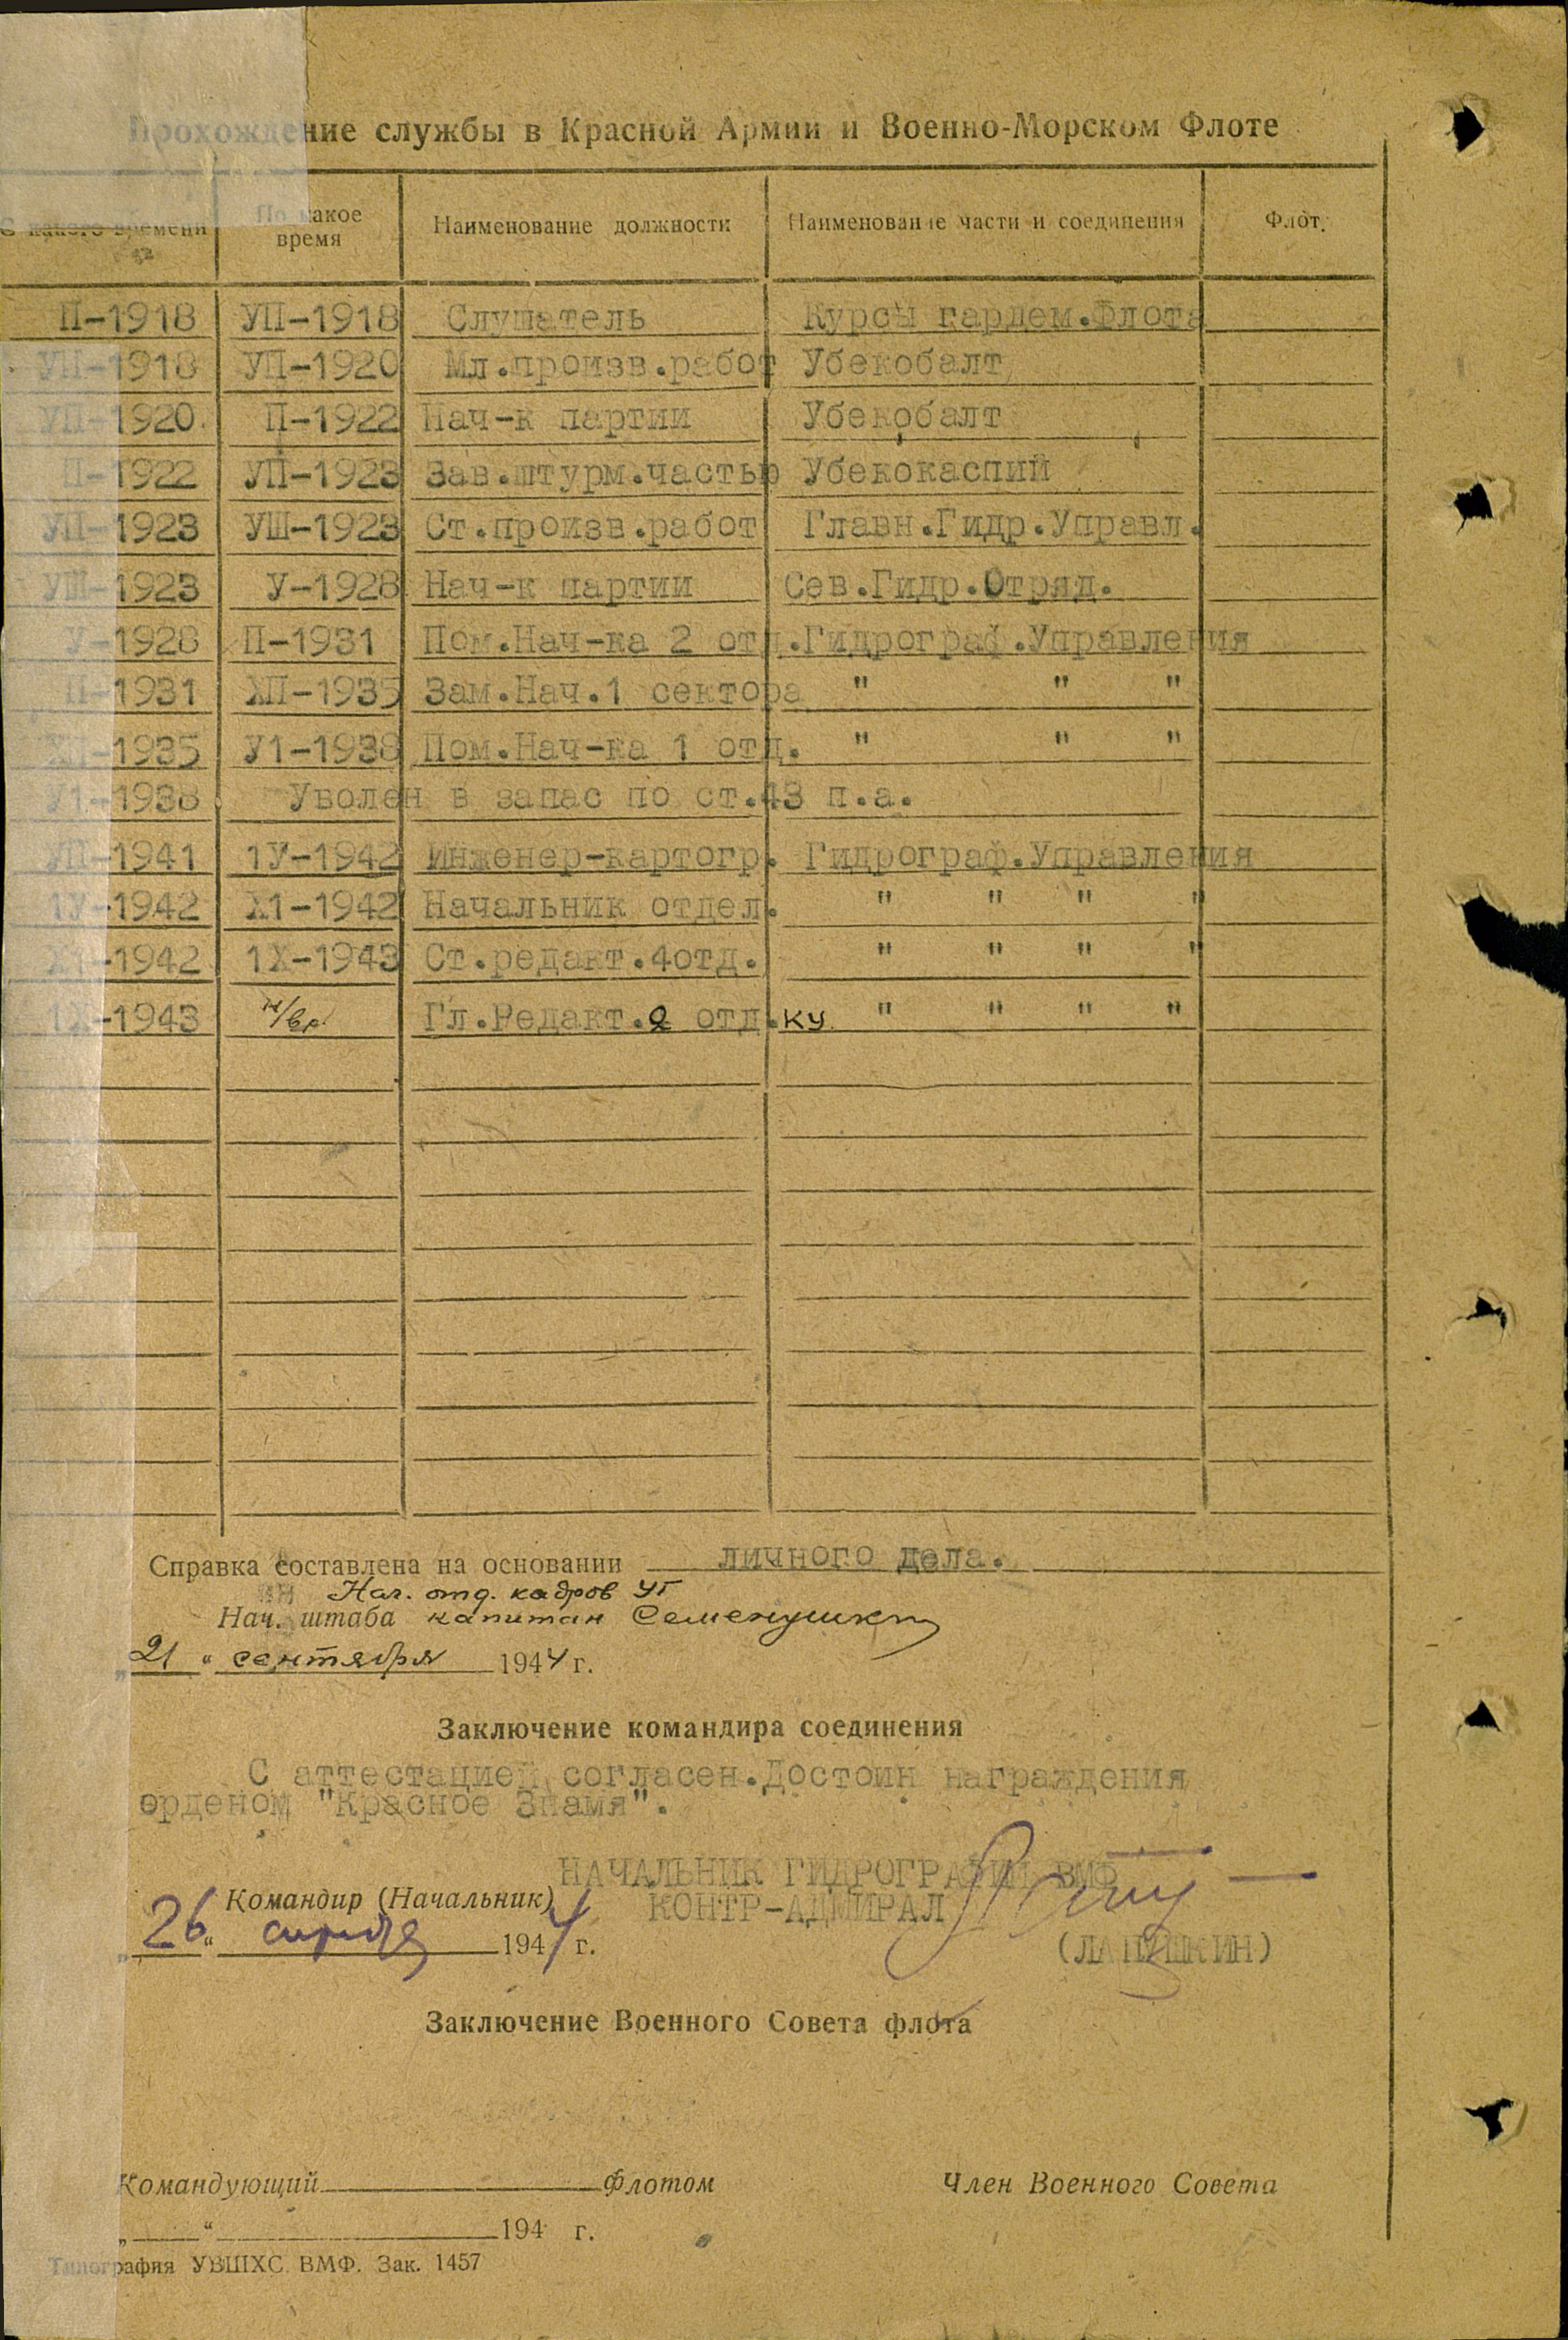 Прохождение службы в Красной Армии и Военно-Морском Флоте
С какого времени | По какое время | Наименование должности | Наименование части и соединения | Флот
II-1918 | УII-1918 | Слушатель | Курсы гардем.Флота
УII-1918 | УII-1920 | Мл.произв.работ | Убекобалт
УII-1920 | II-1922 | Нач-к партии | Убекобалт
II-1922 | УII-1923 | Зав.штурм.частью | Убекокаспий
УII-1923 | УШ-1923 | Ст.произв.работ | Главн.Гидр.Управл.
УШ-1923 | У-1928 | Нач-к партии | Сев.Гидр.Отряд.
У-1928 | II-1931 | Пом.Нач-ка 2 отд. | Гидрограф.Управления
II-1931 | ХII-1935 | Зам.Нач.1 сектора | " " "
ХII-1935 | У1-1938 | Пом.Нач-ка 1 отд. | " " "
У1-1938 | Уволен в запас по ст.43 п.а.
УII-1941 | 1У-1942 | Инженер-картогр. | Гидрограф.Управления
1У-1942 | Х1-1942 | Начальник отдел. | " " " "
Х1-1942 | 1Х-1943 | Ст.редакт.4отд. | " " " "
1Х-1943 | н/вр. | Гл.Редакт.2 отд.ку | " " " "
Справка составлена на основании личного дела.
Нач. отд. кадров УГ
Нач. штаба капитан Семенушкин
„21“ сентября 1944 г.
Заключение командира соединения
С аттестацией согласен.Достоин награждения
орденом "Красное Знамя".
НАЧАЛЬНИК ГИДРОГРАФИИ ВМФ
Командир (Начальник) КОНТР-АДМИРАЛ
„26“ 1944 г. (ЛАПУШКИН)
Заключение Военного Совета флота
Командующий Флотом Член Военного Совета
„ “ 194 г.
Типография УВШХС ВМФ. Зак. 1457